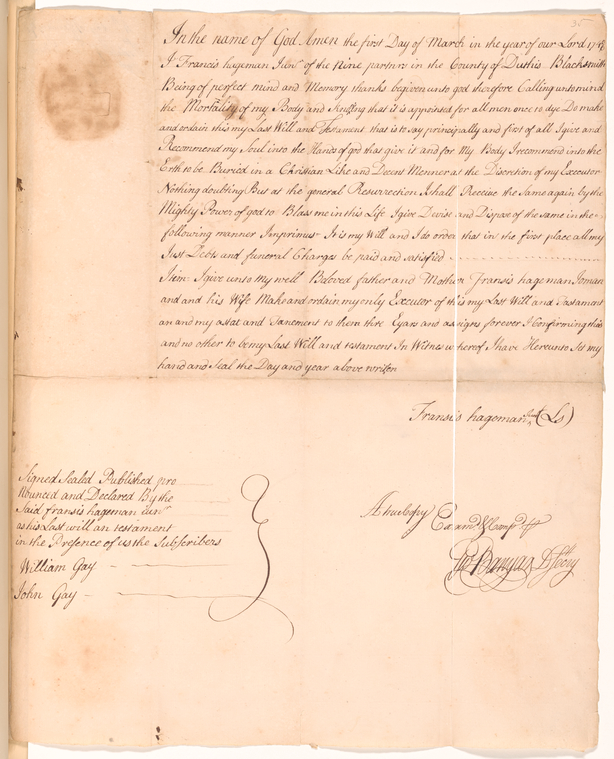 35
In the name of God Amen the first Day of March in the year of our Lord 174
I Francis hageman Junr of the Nine partners in the County of Duthis Blacksmith
Being of perfect mind and Memory thanks be given unto god therefore Calling unto mind
the Mortality of my Body and Knowing that it is appointed for all men once to dye Do make
and ordain this my Last Will and Testament that is to say principally and first of all I give and
Recommend my Soul into the Hands of god that give it and for My Body I recommend into the
Erth to be Buried in a Christian Like and Decent Menner as the Discretion of my Executor
Nothing doubting But at the general Resurrection I shall Receive the same again by the
Mighty Power of god to Blass me in this Life I give Devise and Dispose of the same in the
following manner Imprimus It is my Will and I do order that in the first place all my
Just Debts and funeral Charges be paid and satisfied
Item I give unto my well Beloved father and Mother Fransis hageman
and and his Wife Make and ordain my only Executor of this my Last Will and Testament
an and my astat and Tanement to them thire Eyars and assigns forever I Confirming this
and no other to be my Last Will and testament In Witnes whereof I have Hereunto Set my
hand and Seal the Day and year above writen
Fransis hageman (Ls)
Signed Sealed Published pro
Nounced and Declared By the
Said fransis hageman iunr
as his Last will an testament
in the Presence of us the Subscribers
William Gay
John Gay
A true Copy Examd & Compd
Geo Banyar D Secry